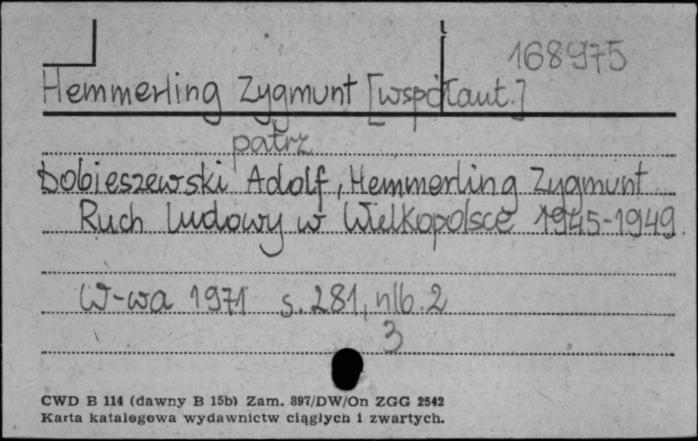 168975
Hemmerling Zygmunt [współaut.]
patrz
Dobieszewski Adolf, Hemmerling Zygmunt
Ruch ludowy w Wielkopolsce 1945-1949
W-wa 1971 s. 281, nlb. 2
3
CWD B 114 (dawny B 15b) Zam. 897/DW/On ZGG 2542
Karta katalogowa wydawnictw ciągłych i zwartych.